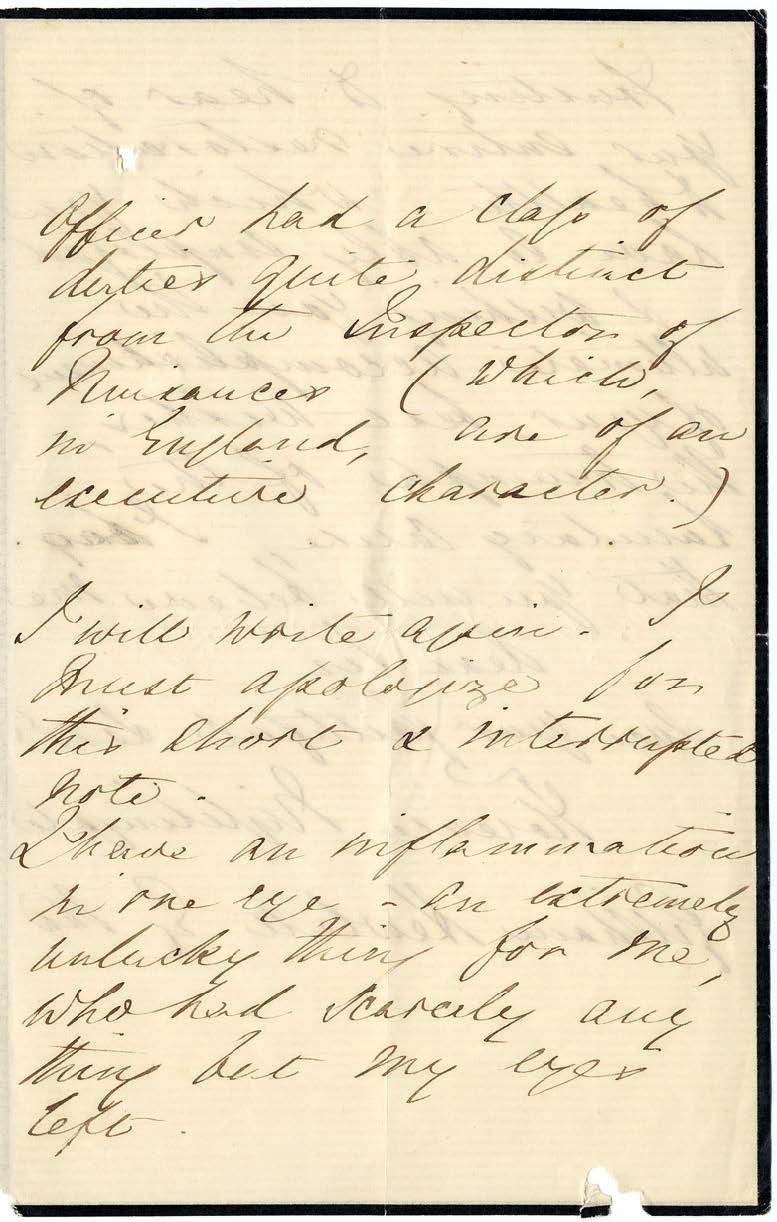 Officer had a class of
duties quite distinct
from the Inspector of
Nuisances (which,
in England, are of an
executive character.)
I will write again. I
must apologize for
this short & interrupted
note.
I have an inflammation
in one eye - an extremely
unlucky thing for me,
who had scarcely any
thing but my eyes
left.